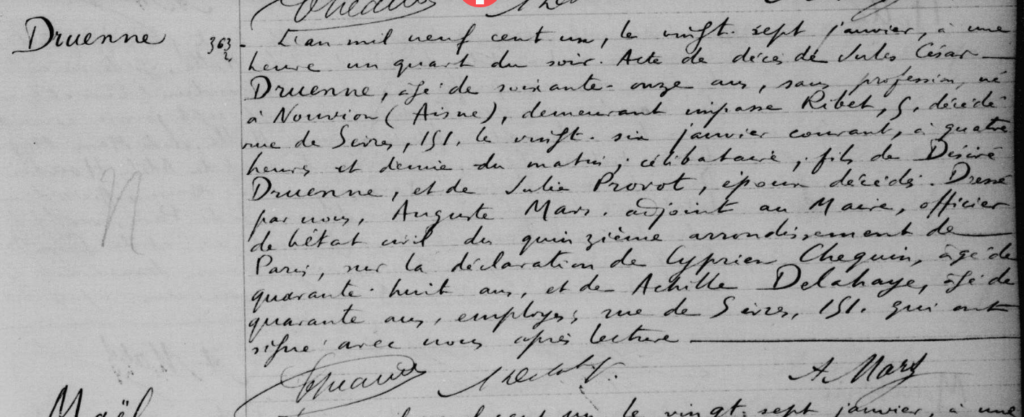 Druenne
363
L'an mil neuf cent un, le vingt-sept janvier, à une
heure un quart du soir. Acte de décès de Jules César
Druenne, âgé de soixante-onze ans, sans profession, né
à Nouvion (Aisne), demeurant impasse Ribet, 5, décédé
rue de Sèvres, 151. le vingt-six janvier courant, à quatre
heures et demie du matin; célibataire, fils de Désiré
Druenne, et de Julie Provot, époux décédés. Dressé
par nous, Auguste Mars. adjoint au Maire, officier
de l'état civil du quinzième arrondissement de
Paris, sur la déclaration de Cyprien Chequin, âgé de
quarante-huit ans, et de Achille Delahaye, âgé de
quarante ans, employés, rue de Sèvres, 151. qui ont
signé avec nous après lecture
A. Mars
Maël
un le vingt-sept janvier à une